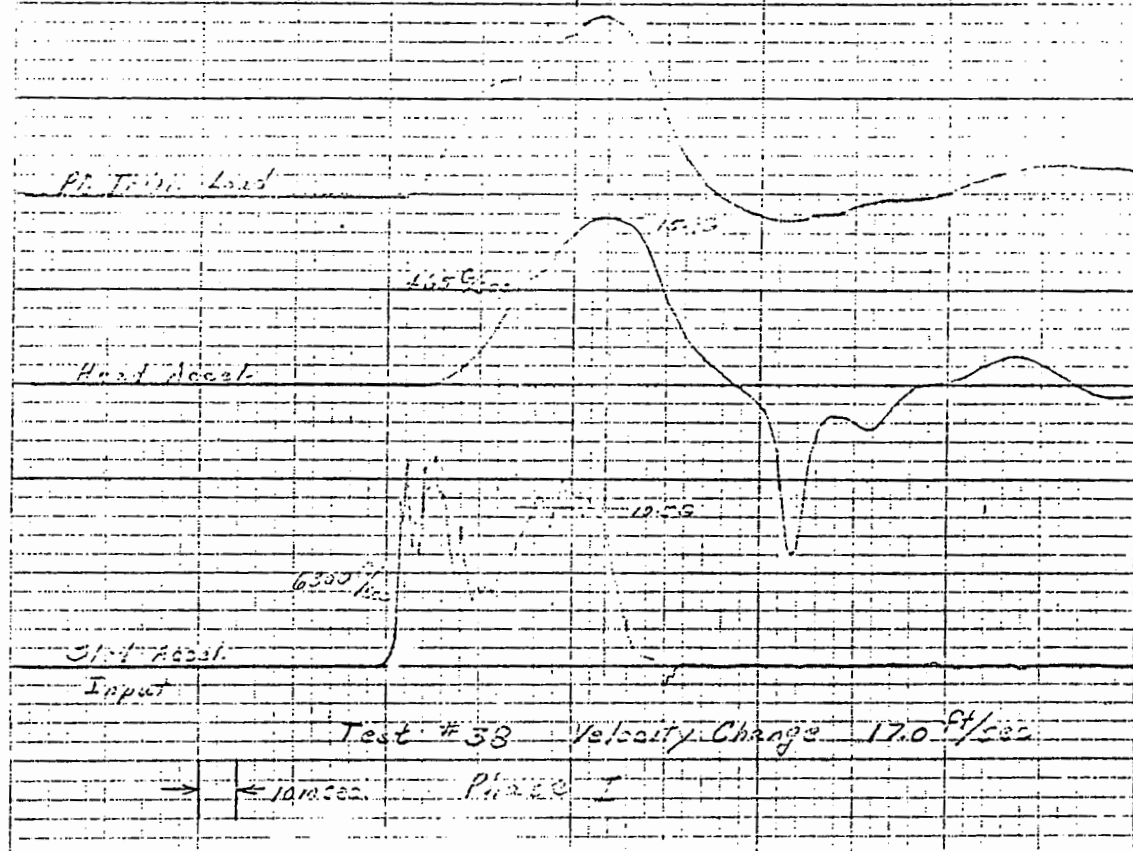 Load
15.1G
465 G/sec
Head Accel.
10.5G
6300 G/sec
Sled Accel.
Input
Test # 38 Velocity Change 17.0 ft/sec
10 msec. Phase I